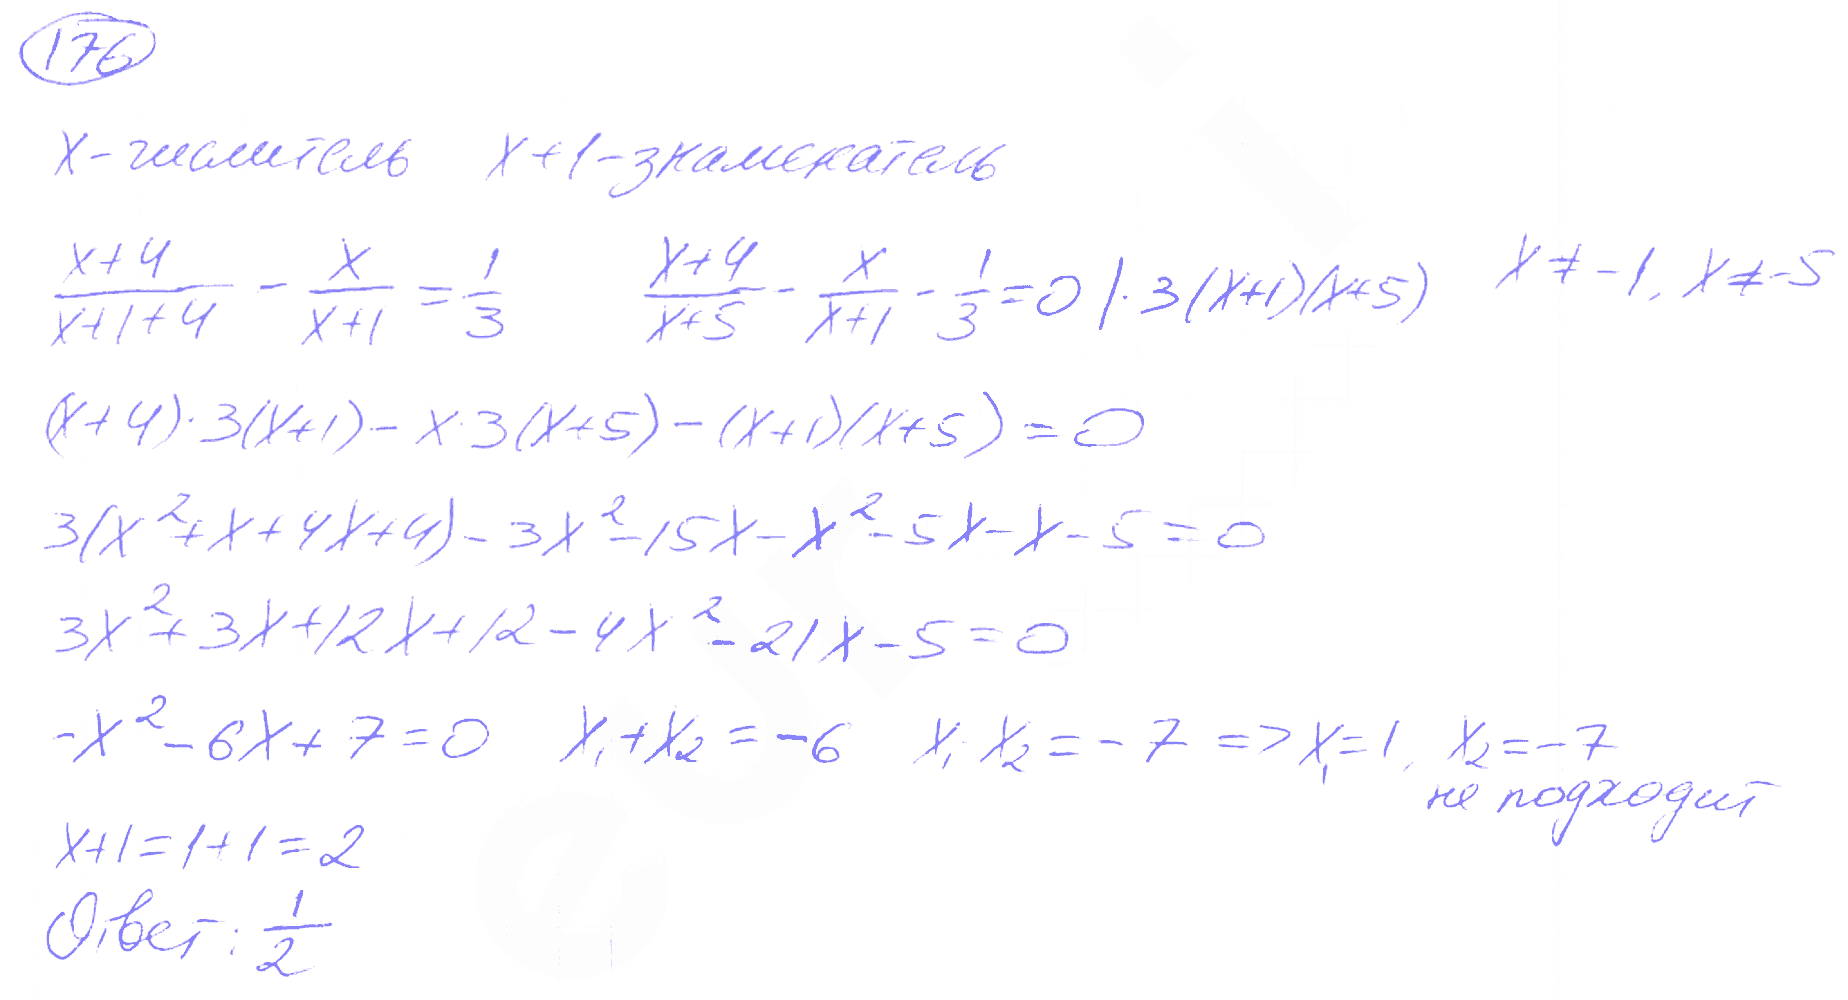 176
x - числитель x+1 - знаменатель
(x+4)/(x+1+4) - x/(x+1) = 1/3 (x+4)/(x+5) - x/(x+1) - 1/3 = 0 | · 3(x+1)(x+5) x ≠ -1, x ≠ -5
(x+4)·3(x+1) - x·3(x+5) - (x+1)(x+5) = 0
3(x²+x+4x+4) - 3x² - 15x - x² - 5x - x - 5 = 0
3x² + 3x + 12x + 12 - 4x² - 21x - 5 = 0
-x² - 6x + 7 = 0 x₁ + x₂ = -6 x₁·x₂ = -7 => x₁ = 1, x₂ = -7
не подходит
x+1 = 1+1 = 2
Ответ: 1/2